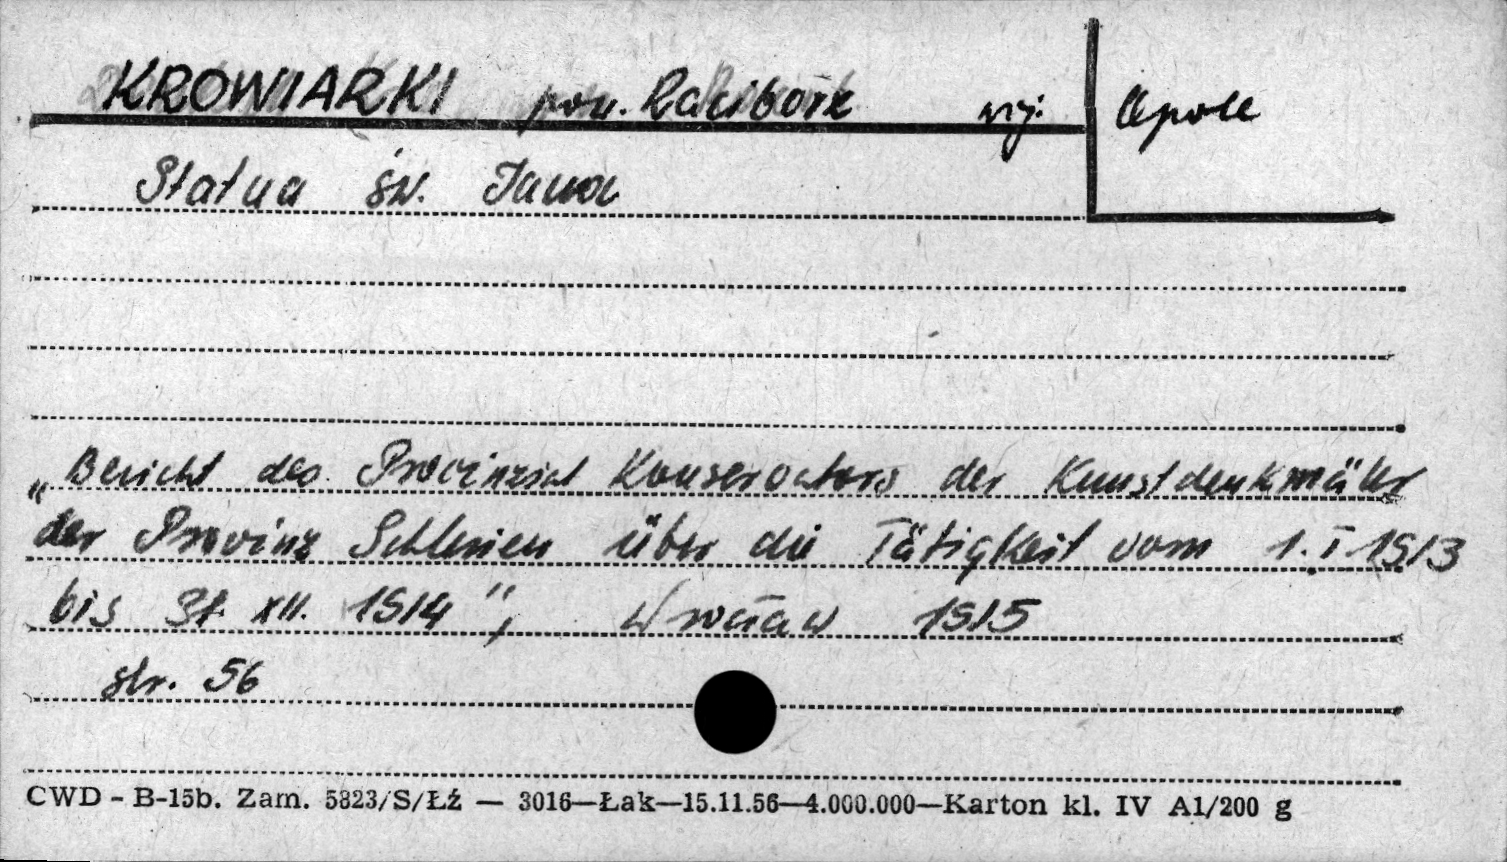 KROWIARKI pow. Racibórz woj. Opole
Statua św. Jana
„Bericht des Provinzial Konservators der Kunstdenkmäler
der Provinz Schlesien über die Tätigkeit vom 1.I.1913
bis 31 XII. 1914", Wrocław 1915
str. 56
CWD - B-15b. Zam. 5823/S/Łź — 3016—Łak—15.11.56—4.000.000—Karton kl. IV A1/200 g